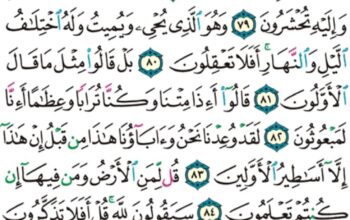 وَإِلَيْهِ تُحْشَرُونَ ٧٩ وَهُوَ ٱلَّذِى يُحْىِۦ وَيُمِيتُ وَلَهُ ٱخْتِلَـٰفُ
ٱلَّيْلِ وَٱلنَّهَارِ ۚ أَفَلَا تَعْقِلُونَ ٨٠ بَلْ قَالُوا۟ مِثْلَ مَا قَالَ
ٱلْأَوَّلُونَ ٨١ قَالُوٓا۟ أَءِذَا مِتْنَا وَكُنَّا تُرَابًا وَعِظَـٰمًا أَءِنَّا
لَمَبْعُوثُونَ ٨٢ لَقَدْ وُعِدْنَا نَحْنُ وَءَابَآؤُنَا هَـٰذَا مِن قَبْلُ إِنْ هَـٰذَآ
إِلَّآ أَسَـٰطِيرُ ٱلْأَوَّلِينَ ٨٣ قُل لِّمَنِ ٱلْأَرْضُ وَمَن فِيهَآ إِن
كُنتُمْ تَعْلَمُونَ ٨٤ سَيَقُولُونَ لِلَّهِ ۚ قُلْ أَفَلَا تَذَكَّرُونَ